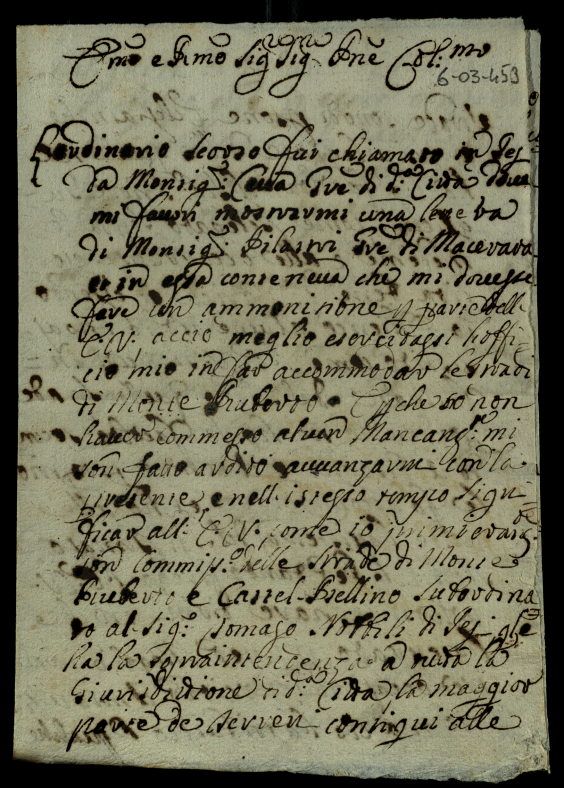 Em̃o e Rmõ Sig. Sig. Prñe Col:mo
6-03-459
L'ordinario scorso fui chiamato in Jesi
da Monsig.r Gṽe di d.a Città dove
mi favorì mostrarmi una lettera
di Monsig.r Pilastri Gṽe di Macerata
et in essa conteneva che mi dovesse
fare un ammonitione p parte dell
E.V. acciò meglio esercitassi l'offi-
cio mio in far accommodar le stradi
di Monte Ruberto e p che io non
haver commesso alcun Mancam.to mi
son fatto ardito avvanzarmi con la
presente, e nell'istesso tempo signi
ficar all'E.V. come io
son Commiss.o delle strade di Monte
Ruberto e Castel Bellino subordina
to al Sig.r Tomaso Nobili di Jesi
ha la sopraintendenza a tutta la
Giurisditione di d.a Città la maggior
parte de terreni contigui alle